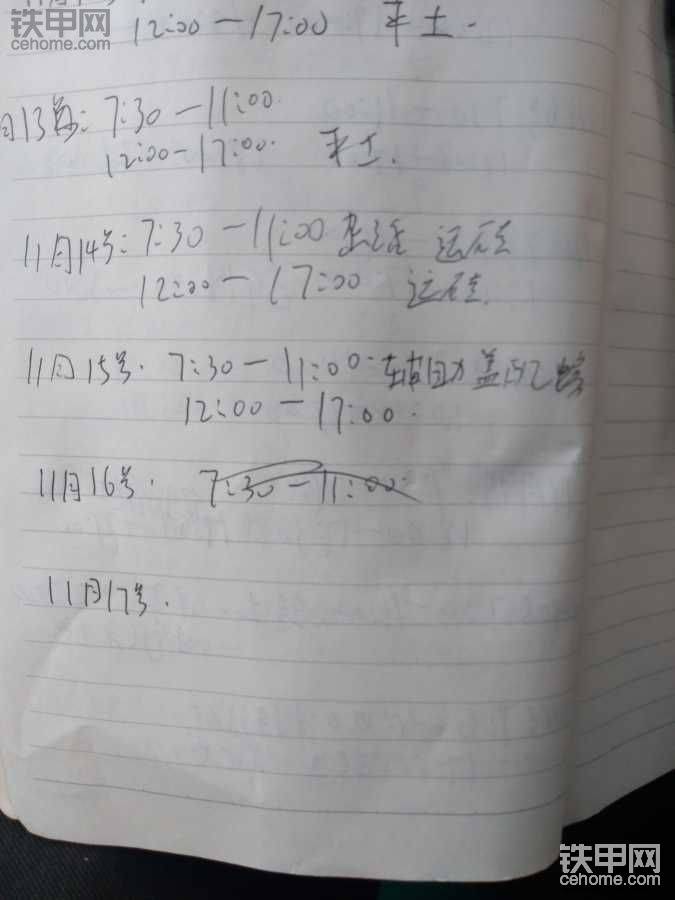 铁甲网
cehome.com
12:00－17:00 平土.
月13号: 7:30－11:00.
12:00－17:00. 平土.
11月14号: 7:30－11:00 运
12:00－17:00 运
11月15号. 7:30－11:00.
12:00－17:00.
11月16号. 7:30－11:00.
11月17号.
铁甲网
cehome.com